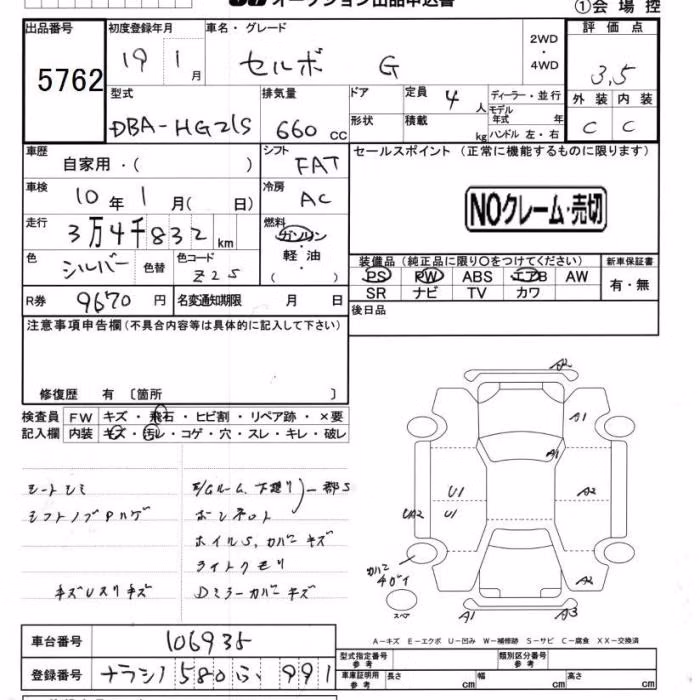 オークション出品申込書
①会場控
出品番号 初度登録年月 車名・グレード 2WD・4WD 評価点
5762 19 1月 セルボ G 3.5
型式 排気量 ドア 定員 4人 ディーラー・並行 外装 内装
モデル年式 年
DBA-HG21S 660cc 形状 積載 kg ハンドル 左・右 C C
車歴 自家用・( ) シフト FAT セールスポイント (正常に機能するものに限ります)
車検 10年1月( 日) 冷房 AC NOクレーム・売切
走行 3万4千832km 燃料 ガソリン・軽油・( )
色 シルバー 色替 色コード Z2S 装備品 (純正品に限り○をつけてください) 新車保証書
PS PW ABS エアB AW 有・無
R券 9670円 名変通知期限 月 日 SR ナビ TV カワ
後日品
注意事項申告欄 (不具合内容等は具体的に記入して下さい)
修復歴 有 〔箇所 〕
検査員 FW キズ・飛石・ヒビ割・リペア跡・×要
記入欄 内装 キズ・汚レ・コゲ・穴・スレ・キレ・破レ
シートシミ E/Gルーム、下廻り 一部S
シフトノブPハゲ ボンネット
ホイルS、カバーキズ
ライトクモリ
キズUスリキズ Dミラーカバーキズ
A2
A1
A1
U1 A2
UA2 U1
カバーチガイ A2
スペア A1 A3
A-キズ E-エクボ U-凹み W-補修跡 S-サビ C-腐食 XX-交換済
車台番号 106935
型式指定番号 参考 類別区分番号 参考
登録番号 ナラシノ 580 ふ 991
車車証明用 参考 長さ cm 幅 cm 高さ cm